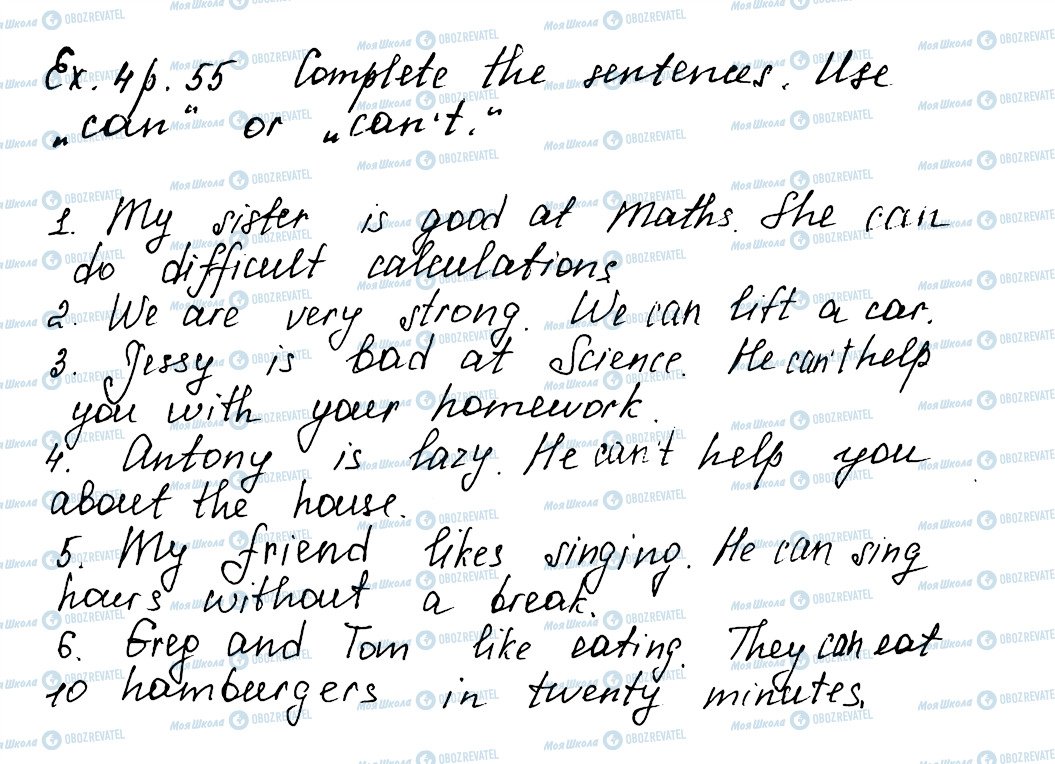 Ex. 4 p. 55 Complete the sentences. Use
„can“ or „can't.“
1. My sister is good at Maths. She can
do difficult calculations
2. We are very strong. We can lift a car.
3. Jessy is bad at Science. He can't help
you with your homework.
4. Antony is lazy. He can't help you
about the house.
5. My friend likes singing. He can sing
hours without a break.
6. Greg and Tom like eating. They can eat
10 hamburgers in twenty minutes.
МОЯ ШКОЛА OBOZREVATEL